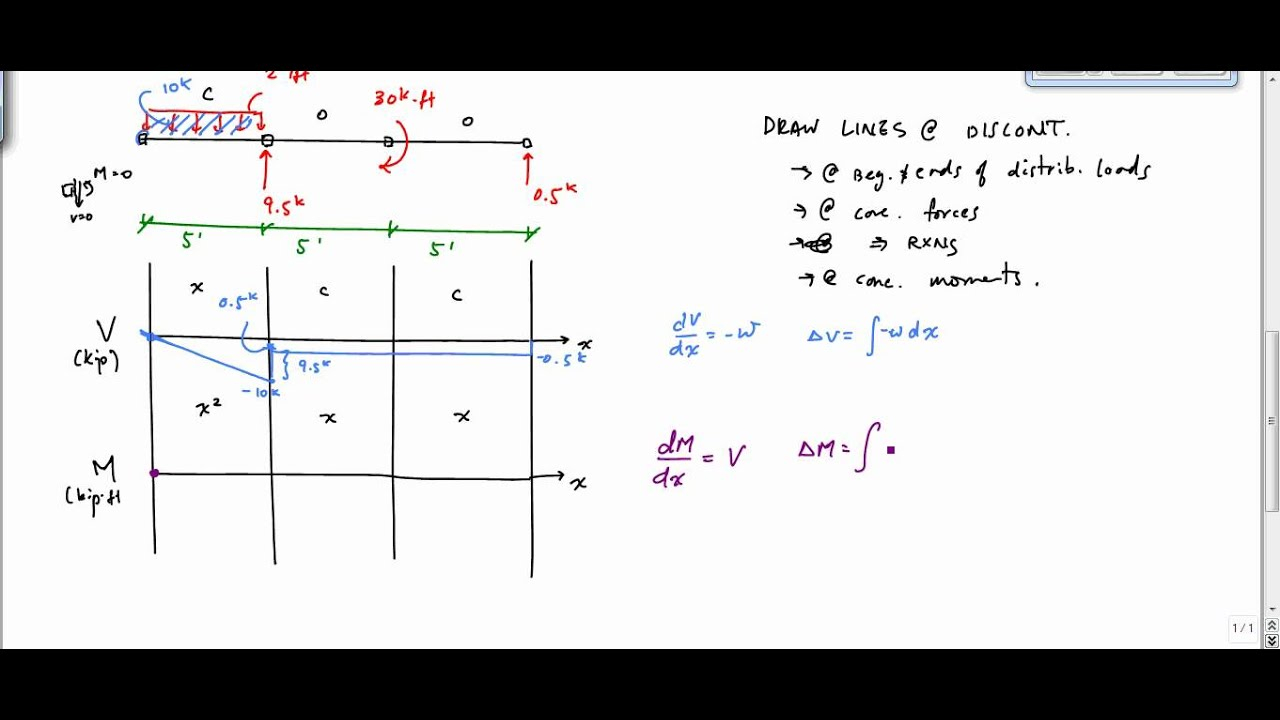 10k
C
30k·ft
O
O
M=0
V=0
9.5k
0.5k
5'
5'
5'
x
c
c
0.5k
V
(kip)
x
9.5k
-10k
-0.5k
x²
x
x
M
(kip·ft
x
DRAW LINES @ DISCONT.
→ @ Beg. & ends of distrib. loads
→ @ conc. forces
⇒ RXNS
→ @ conc. moments.
dV/dx = -w ΔV = ∫-w dx
dM/dx = V ΔM = ∫
1 / 1